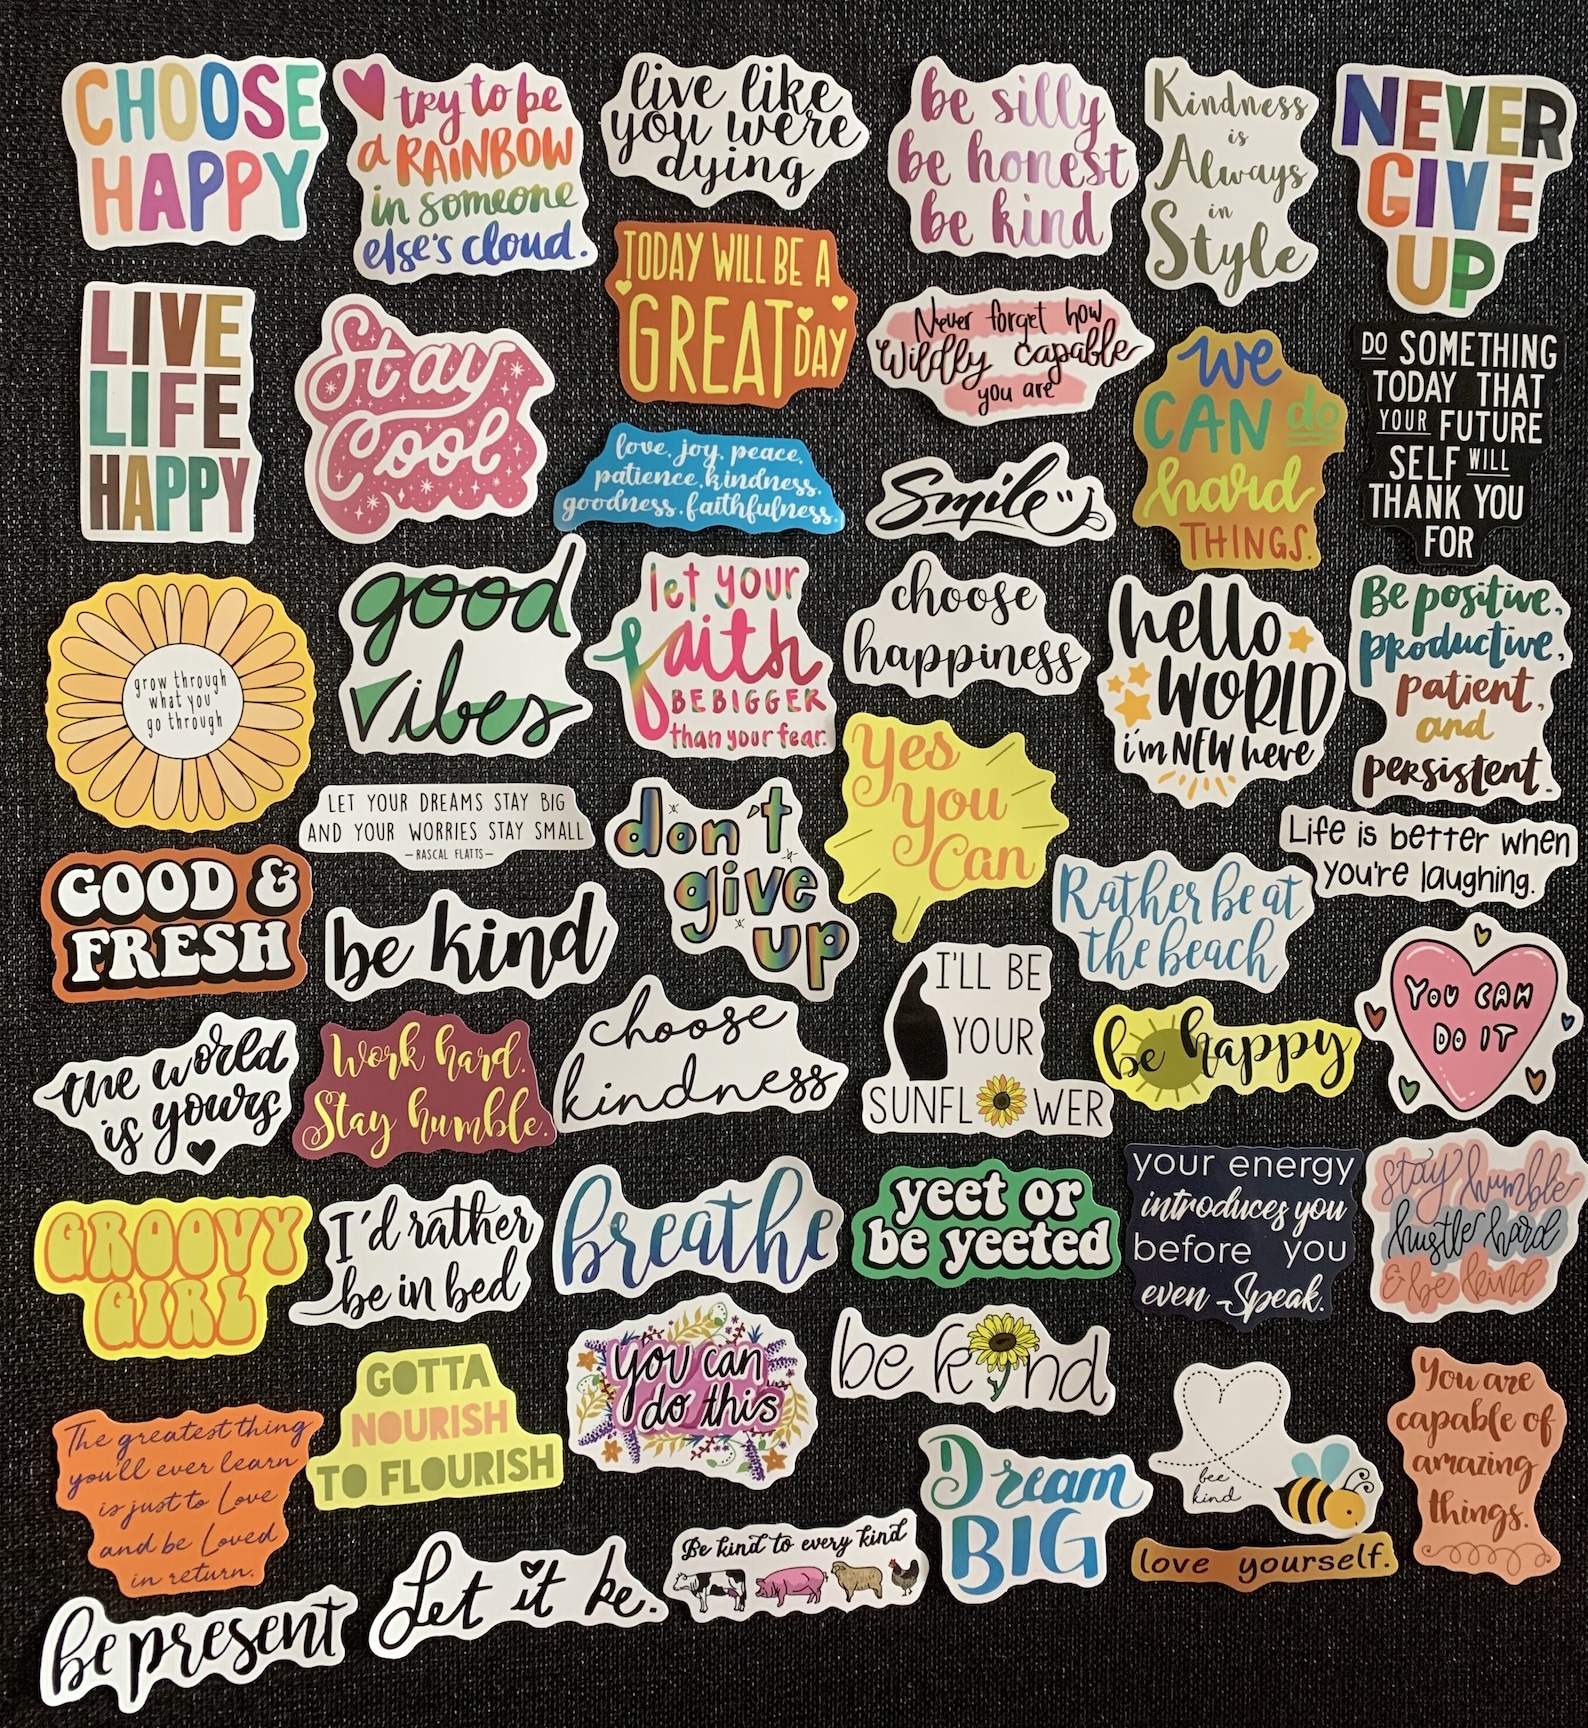 CHOOSE
HAPPY
try to be
a RAINBOW
in someone
else's cloud.
live like
you were
dying
be silly
be honest
be kind
Kindness
is
Always
in
Style
NEVER
GIVE
UP
LIVE
LIFE
HAPPY
Stay
Cool
TODAY WILL BE A
GREAT DAY
love, joy, peace,
patience, kindness,
goodness, faithfulness,
Never forget how
Wildly capable
you are
Smile
we
CAN do
hard
THINGS.
DO SOMETHING
TODAY THAT
YOUR FUTURE
SELF WILL
THANK YOU
FOR
grow through
what you
go through
good
vibes
let your
faith
BE BIGGER
than your fear.
choose
happiness
hello
WORLD
i'm NEW here
Be positive,
productive,
patient,
and
persistent.
LET YOUR DREAMS STAY BIG
AND YOUR WORRIES STAY SMALL
-RASCAL FLATTS-
don't
give
up
Yes
You
Can
Life is better when
you're laughing.
GOOD &
FRESH
be kind
Rather be at
the beach
I'LL BE
YOUR
SUNFLWER
be happy
YOU CAN
DO IT
the world
is yours
Work hard.
Stay humble.
choose
kindness
GROOVY
GIRL
I'd rather
be in bed
breathe
yeet or
be yeeted
your energy
introduces you
before you
even Speak.
stay humble
hustle hard
& be kind
The greatest thing
you'll ever learn
is just to Love
and be Loved
in return.
GOTTA
NOURISH
TO FLOURISH
you can
do this
be knd
Dream
BIG
bee
kind
love yourself.
You are
capable of
amazing
things.
be present
Let it be.
Be kind to every kind